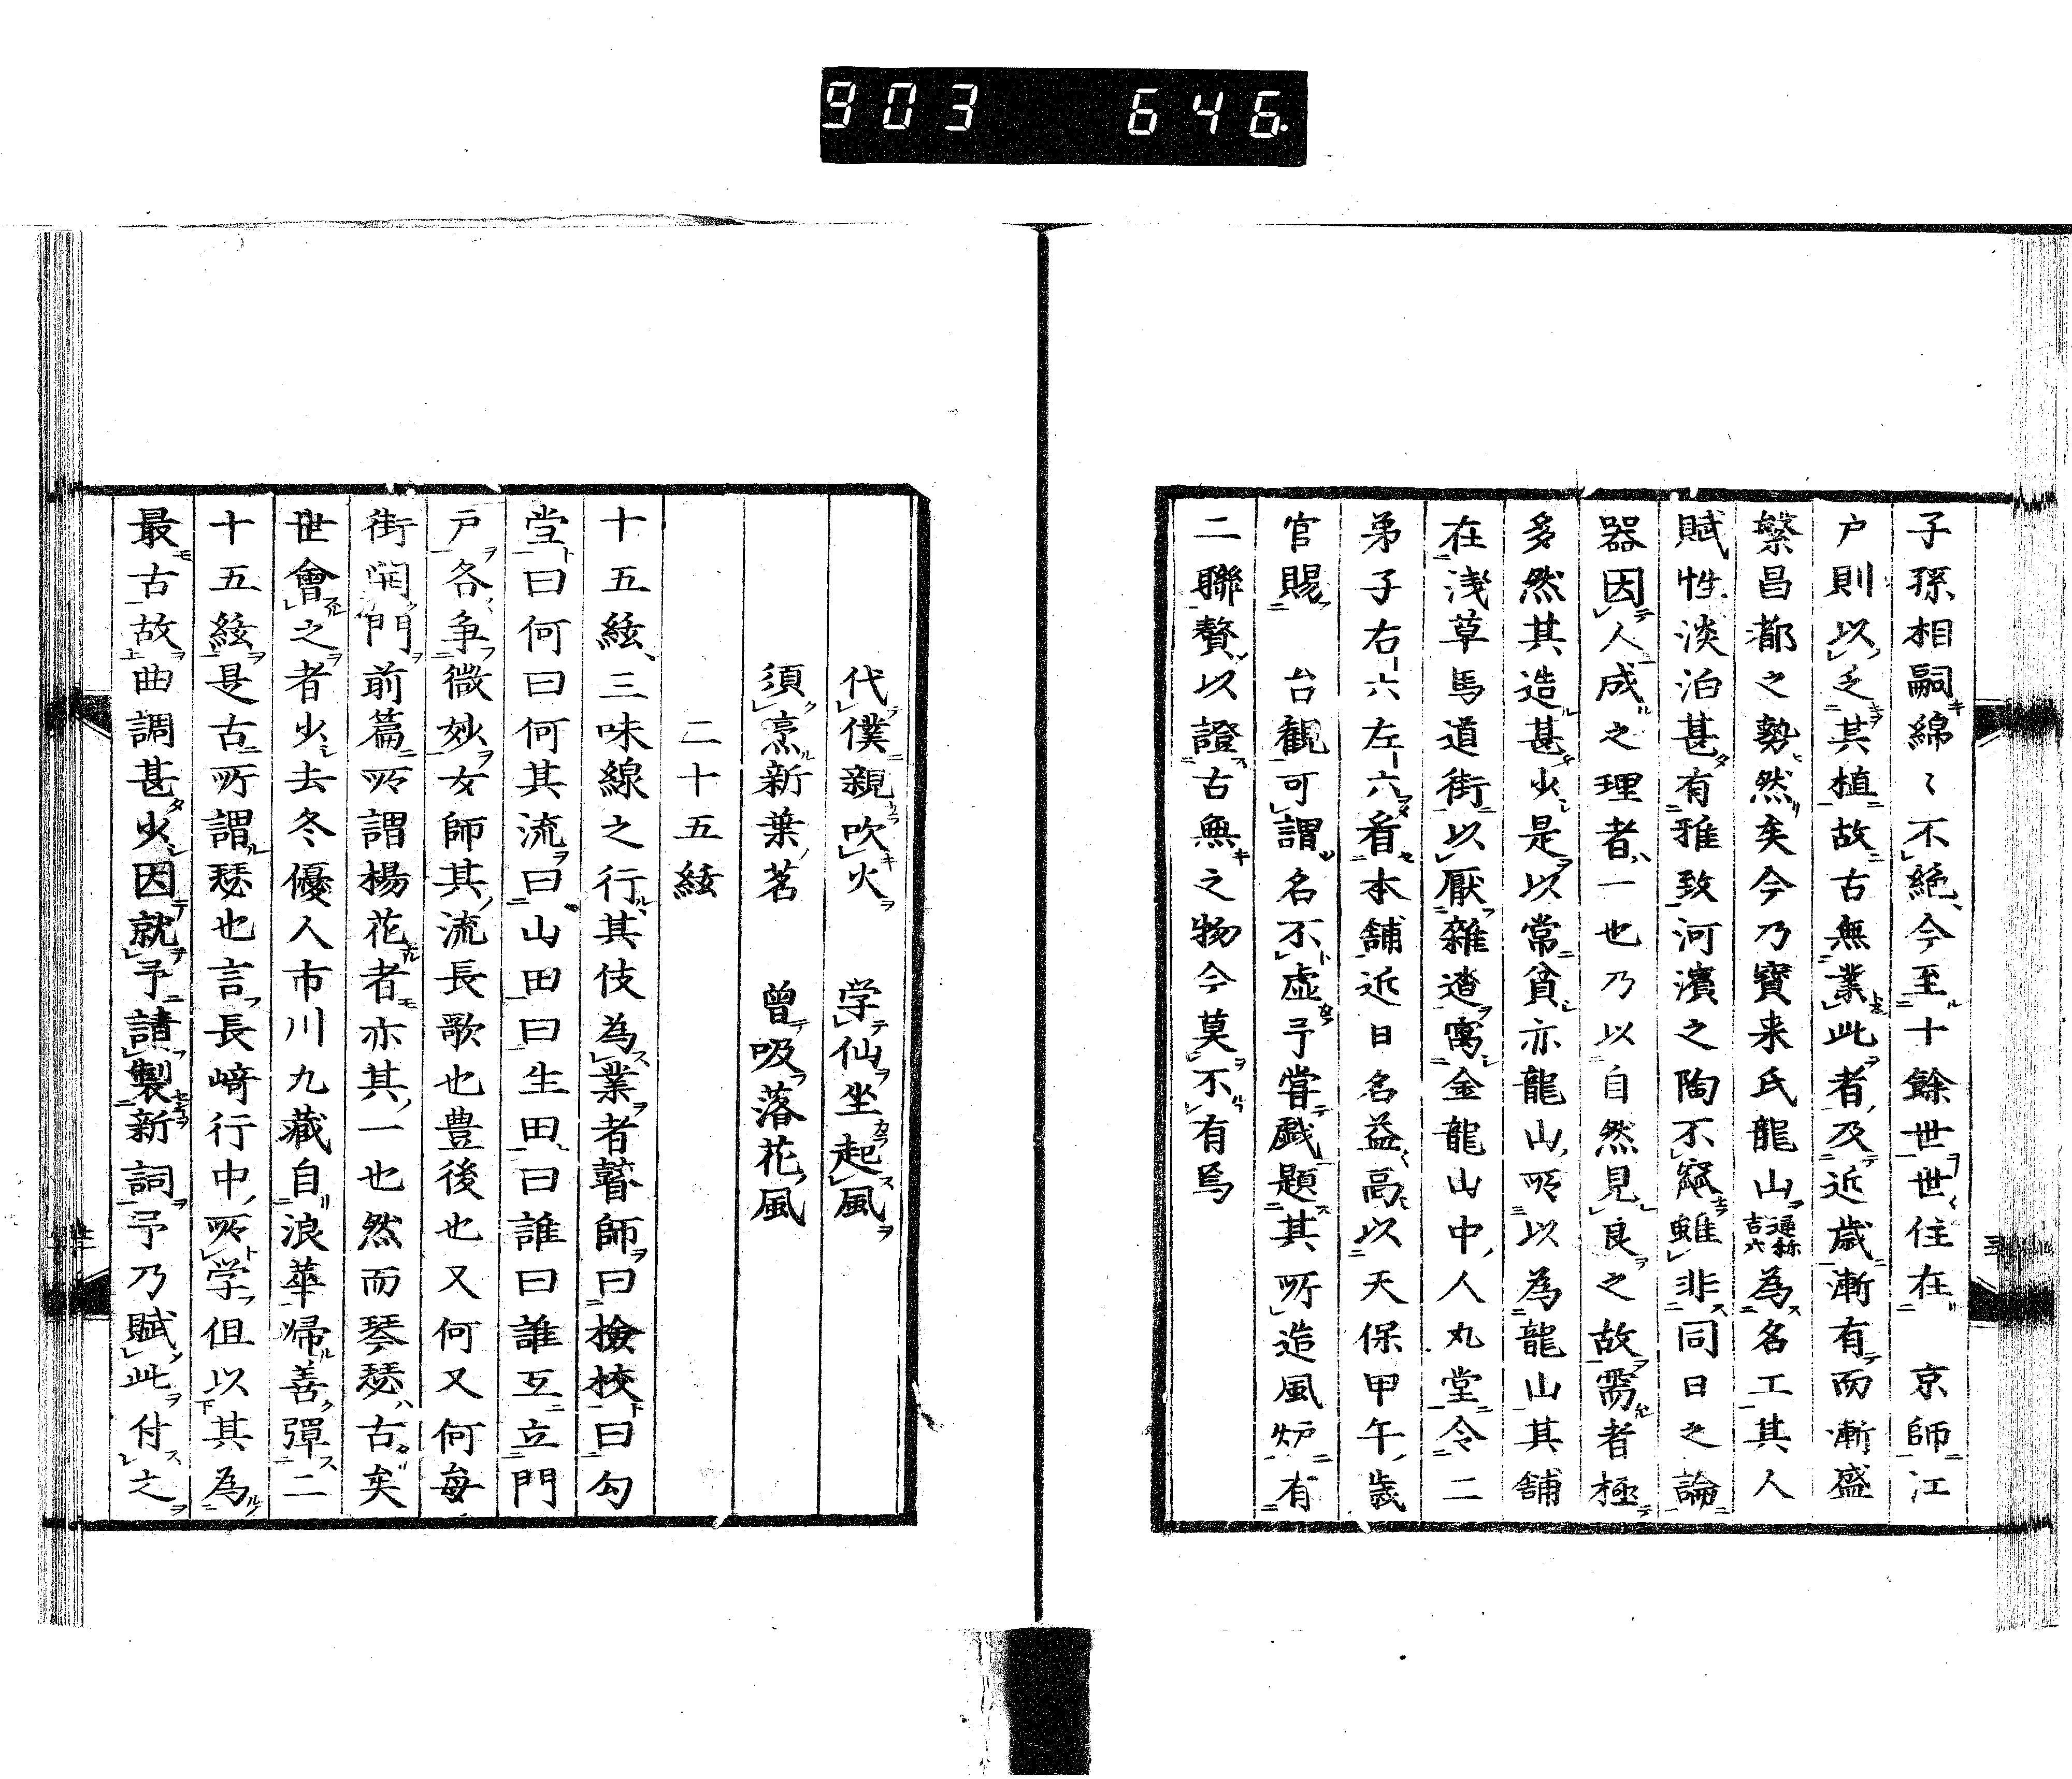 903 646.
子孫相嗣綿〻不絶今至十餘世世住在 京師江
户則以乏其植故古無業此者及近歳漸有而漸盛
繁昌都之勢然矣今乃寳来氏龍山通称吉六為名工其人
賦性淡泊甚有雅致河濱之陶不窳雖非同日之論
器因人成之理者一也乃以自然見良之故需者極
多然其造甚少是以常貧亦龍山所以為龍山其舗
在浅草馬道街以厭雜遝寓金龍山中人丸堂令二
弟子右六左六看本舗近日名益高以天保甲午歳
官賜 台観可謂名不虚予嘗戯題其所造風炉有
二聯贅以證古無之物今莫不有焉
代僕親吹火 学仙坐起風
須烹新葉茗 曽吸落花風
二十五絃
十五絃三味線之行其伎為業者瞽師曰撿挍曰勾
堂曰何曰何其流曰山田曰生田曰誰曰誰互立門
户各争微妙女師其流長歌也豊後也又何又何毎
街開門前篇所謂楊花者亦其一也然而琴瑟古矣
世會之者少去冬優人市川九藏自浪華帰善弾二
十五絃是古所謂瑟也言長﨑行中所学但以其為
最古故曲調甚少因就予請製新詞予乃賦此付之